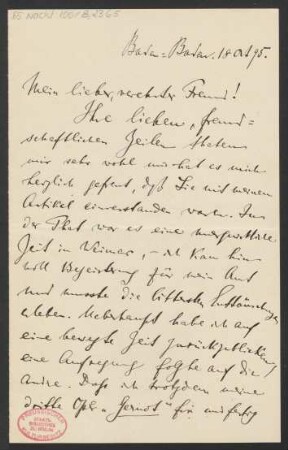 55 Nachl 100/B, 2365
Baden-Baden, 18 Oct 95.
Mein lieber, verehrter Freund!
Ihre lieben, freund-
schaftlichen Zeilen thaten
mir sehr wohl und hat es mich
herzlich gefreut, daß Sie mit meinem
Artikel einverstanden waren. In
der That war es eine merkwürdige
Zeit in Weimar, – ich kam hin
voll Begeisterung für mein Amt
und musste die bittersten Enttäuschungen
erleben. Ueberhaupt habe ich auf
eine bewegte Zeit zurückzublicken,
eine Aufregung folgte auf die
andre. Daß ich trotzdem meine
dritte Oper „Gernot" fix und fertig